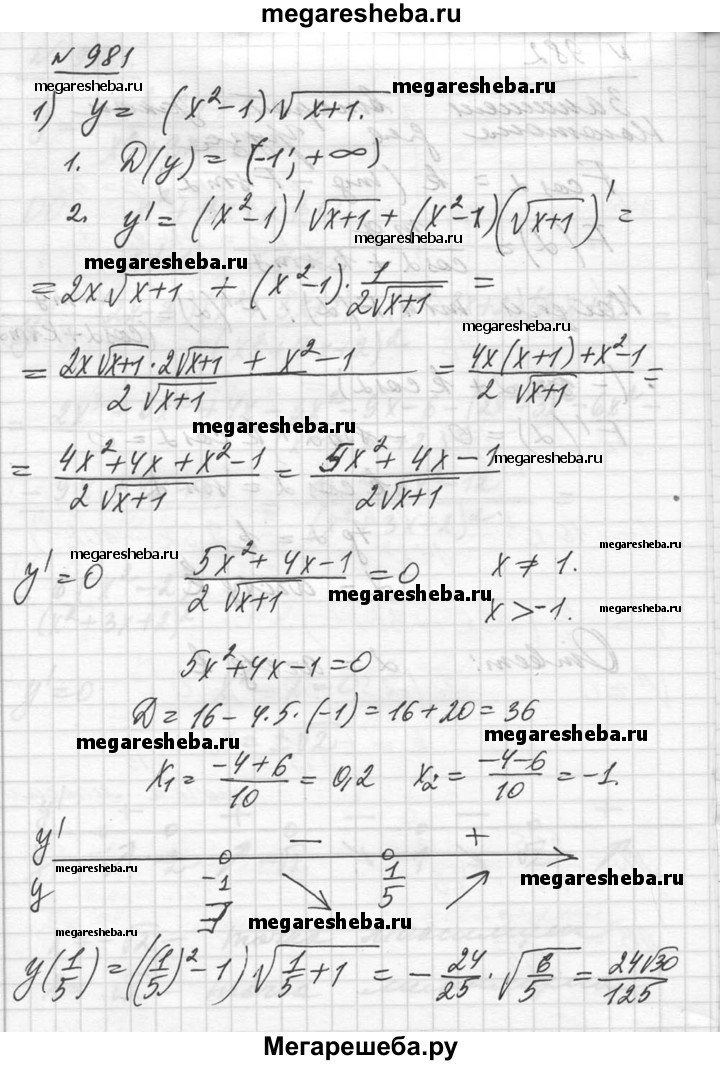 megaresheba.ru
№ 981
megaresheba.ru megaresheba.ru
1) y = (x²-1)√x+1.
1. D(y) = (-1; +∞)
2. y' = (x²-1)'√x+1 + (x²-1)(√x+1)' =
megaresheba.ru megaresheba.ru
= 2x√x+1 + (x²-1)·1/2√x+1 =
megaresheba.ru
= 2x√x+1·2√x+1 + x²-1/2√x+1 = 4x(x+1)+x²-1/2√x+1 =
megaresheba.ru
= 4x²+4x+x²-1/2√x+1 = 5x²+4x-1/2√x+1
megaresheba.ru
megaresheba.ru megaresheba.ru
y'=0 5x²+4x-1/2√x+1 = 0 x ≠ 1.
megaresheba.ru megaresheba.ru
x > -1.
5x²+4x-1=0
D = 16-4·5·(-1) = 16+20 = 36
megaresheba.ru megaresheba.ru
x₁ = -4+6/10 = 0,2 x₂ = -4-6/10 = -1.
y' - +
megaresheba.ru megaresheba.ru
y -1 1/5
megaresheba.ru megaresheba.ru
y(1/5) = ((1/5)²-1)√1/5+1 = -24/25·√6/5 = 24√30/125
Мегарешеба.ру